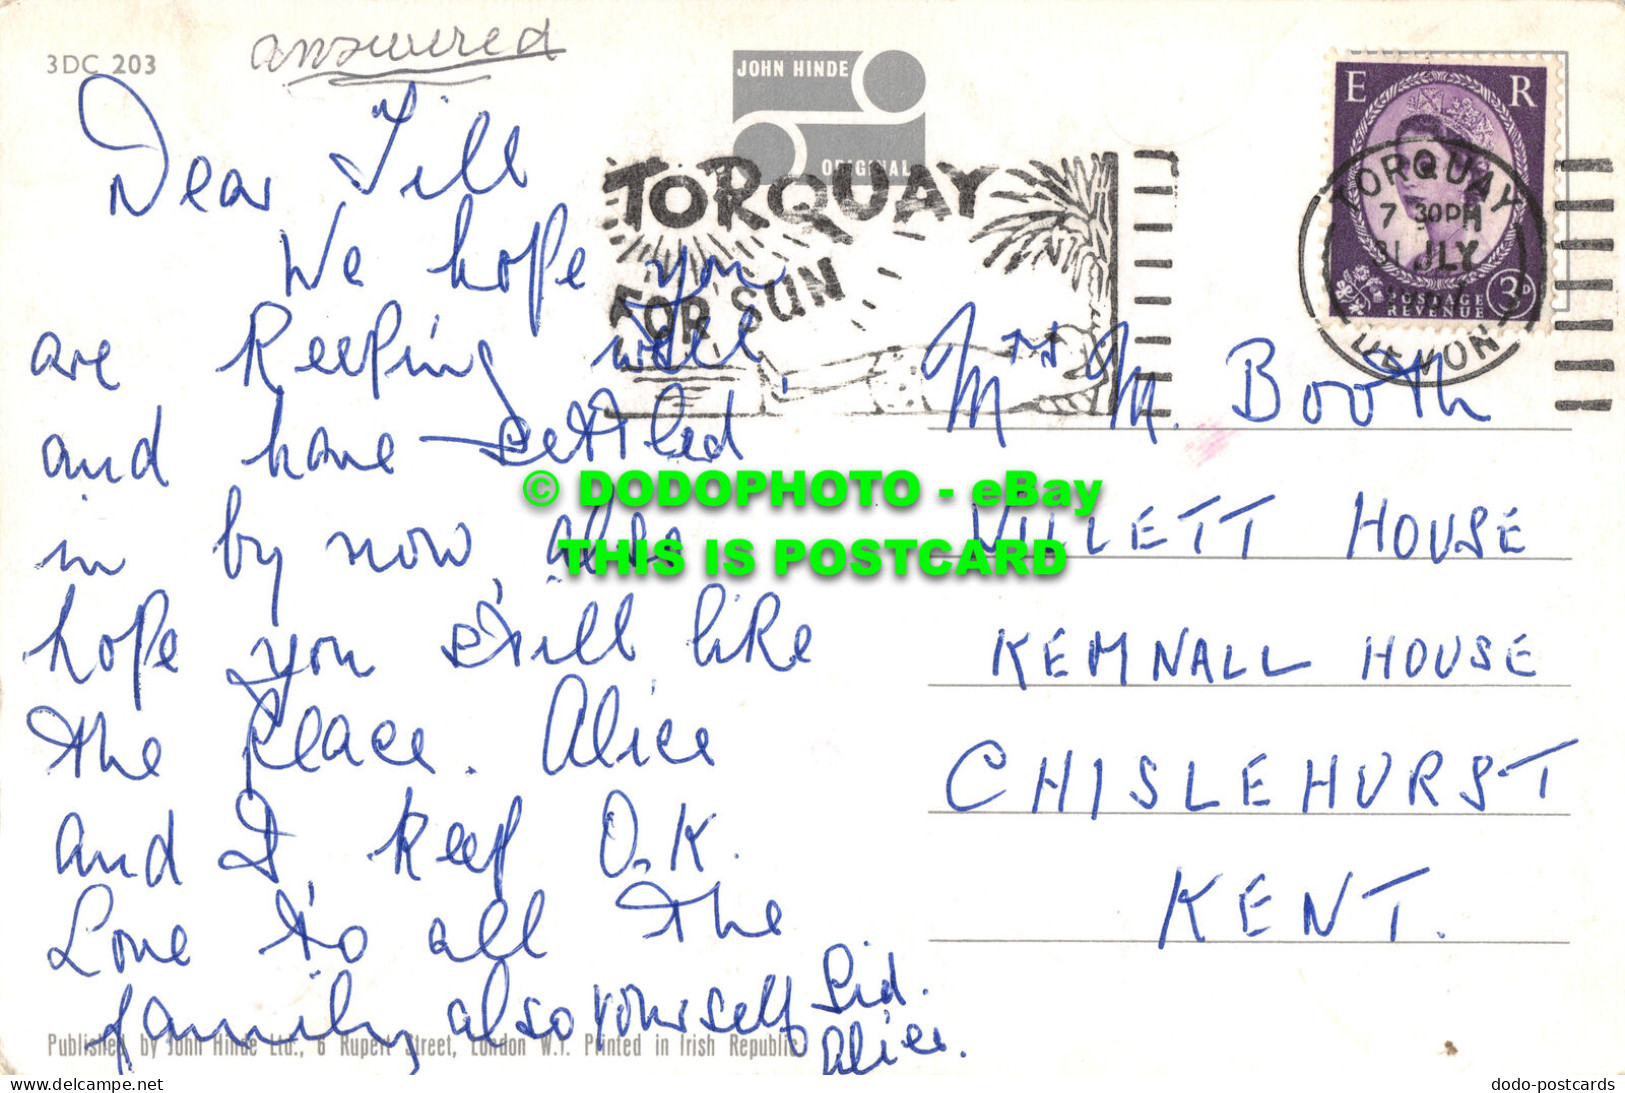 3DC 203
answered
JOHN HINDE
ORIGINAL
E R
POSTAGE
REVENUE
3D
TORQUAY
7 30PM
31 JLY
DEVON
TORQUAY
FOR SUN
Dear Till
We hope you
are keeping well,
and have settled
in by now, also
hope you still like
the place. Alice
and I keep O.K.
Love to all the
family, also yourself
Sid.
Alice.
Mrs M. Booth
WILLETT HOUSE
KEMNALL HOUSE
CHISLEHURST
KENT.
Published by John Hinde Ltd., 6 Rupert Street, London W.1. Printed in Irish Republic
© DODOPHOTO - eBay
THIS IS POSTCARD
Visit our eBay store:
dodo-postcards